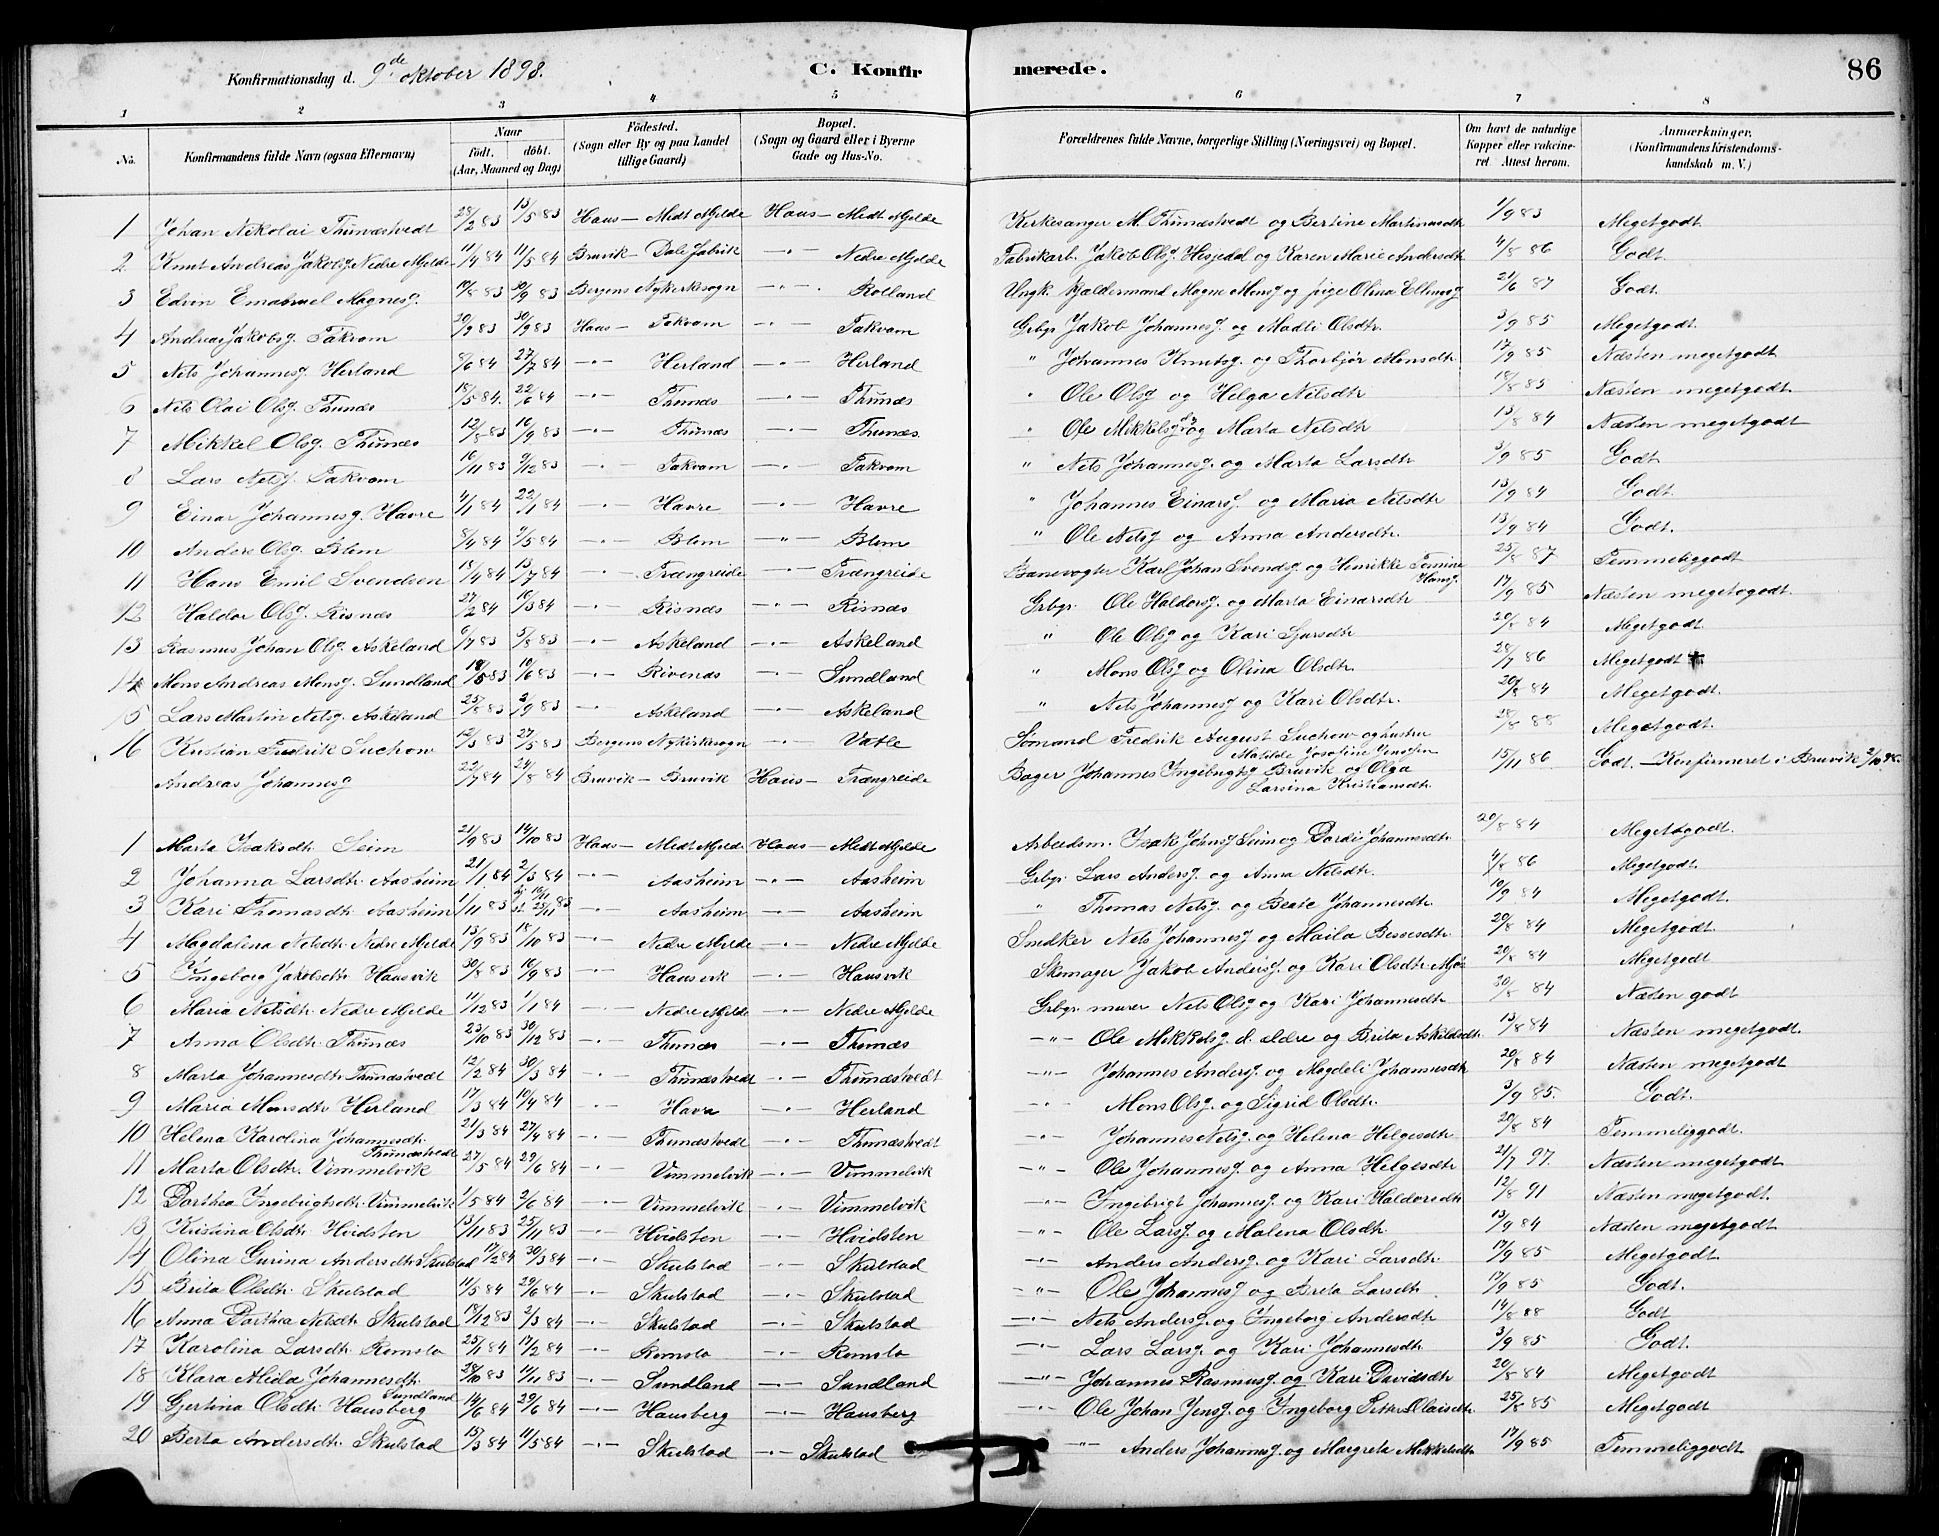 Konfirmationsdag d. 9de oktober 1898.
C. Konfir merede. 86
1 2 3 4 5 6 7 8
No. Konfirmandens fulde Navn (ogsaa Efternavn) Naar født. døbt. (Aar, Maaned og Dag) Födested. (Sogn eller By og paa Landet tillige Gaard) Bopæl. (Sogn og Gaard eller i Byerne Gade og Hus-No. Forældrenes fulde Navne, borgerlige Stilling (Næringsvei) og Bopæl. Om havt de naturlige Kopper eller vakcineret. Attest herom. Anmærkninger. (Konfirmandens Kristendomskundskab m. V.)
1 Johan Nikolai Thunæstvedt 28/2 83 13/5 83 Haus — Midt Mjelde Haus — Midt Mjelde Kirkesanger M. Thunæstvedt og Bertine Martinusdtr 1/9 83 Megetgodt.
2 Knut Andreas Jakobsg. Nedre Mjelde 11/4 84 11/5 84 Bruvik — Dale fabrik —"— Nedre Mjelde Fabrikarb. Jakob Olsg. Hesjedal og Karen Marie Andersdtr 4/8 86 Godt.
3 Edvin Emanuel Magnesg. 19/8 83 30/9 83 Bergens Nykirkesogn —"— Rolland Ungk. Kjældermand Magne Monsg og pige Olina Ellingsg 21/6 87 Godt.
4 Andreas Jakobsg. Takvam 20/9 83 30/9 83 Haus — Takvam —"— Takvam Grbgr. Jakob Johannesg. og Madli Olsdtr. 3/9 85 Megetgodt.
5 Nels Johannesg. Herland 8/6 84 27/7 84 —"— Herland —"— Herland " Johannes Knutsg. og Thorbjør Monsdtr. 17/9 85 Næsten megetgodt
6 Nels Olai Olsg. Thunæs 18/5 84. 22/6 84 —"— Thunæs —"— Thunæs " Ole Olsg og Helga Nelsdtr 18/8 85 Næsten megetgodt.
7 Mikkel Olsg. Thunæs 12/8 83 16/9 83 —"— Thunæs —"— Thunæs. " Ole Mikkelsg. d.y. og Marta Nelsdtr 13/8 84 Næsten megetgodt
8 Lars Nelsg. Takvam 16/11 83 9/12 83 —"— Takvam —"— Takvam " Nels Johannesg. og Marta Larsdtr 3/9 85 Godt.
9 Einar Johannesg. Havre 4/1 84 22/1 84 —"— Havre —"— Havre " Johannes Einarsg. og Maria Nelsdtr 13/9 84 Godt.
10 Anders Olsg. Blem 8/4 84 2/5 84 —"— Blem —"— Blem " Ole Nelsg og Anna Andersdtr. 13/9 84 Godt.
11 Hans Emil Svendsen 18/4 84 13/7 84 —"— Trængreide —"— Trængreide Banevogter Karl Johan Svendsg. og Henrikke Tomine Hansg. 25/8 87 Temmeliggodt
12 Haldor Olsg. Risnæs 27/2 84 16/3 84 —"— Risnæs —"— Risnæs Grbgr. Ole Haldorsg. og Marta Einarsdtr 17/9 85 Næsten megetgodt.
13 Rasmus Johan Olsg. Askeland 6/7 83 5/8 83 —"— Askeland —"— Askeland " Ole Olsg og Kari Larsdtr 20/8 84 Megetgodt.
14 Mons Andreas Monsg. Sundland 18/5 83 10/6 83 —"— Rivenæs —"— Sundland " Mons Olsg og Olina Olsdtr. 28/7 86 Megetgodt
15 Lars Martin Nelsg. Askeland 25/8 83 2/9 83 —"— Askeland —"— Askeland " Nels Johannesg og Kari Olsdtr. 20/8 84 Megetgodt.
16 Kristian Fredrik Suchow 12/3 83 27/5 83 Bergens Nykirkesogn —"— Vatle Sømand Fredrik August Suchow og hustru Matilde Josefine Jensen 28/8 88 Megetgodt.
Andreas Johannesg 22/7 84 24/8 84 Bruvik — Bruvik Haus — Trængreide Bager Johannes Ingebrigtsg Bruvik og Olga Larsina Kristiansdtr. 15/11 86 Godt. — Konfirmeret i Bruvik 2/10 98.
1 Marta Isaksdtr Seim 21/9 83 14/10 83 Haus — Midt Mjelde Haus — Midt Mjelde Arbeidsm. Isak Johnsg Seim og Dordei Johannesdtr 20/8 84 Megetgodt.
2 Johanna Larsdtr. Aasheim 21/1 84 2/3 84 —"— Aasheim —"— Aasheim Grbgr. Lars Andersg. og Anna Nelsdtr. 4/8 86 Megetgodt.
3 Kari Thomasdtr. Aasheim 1/11 83 hj. 10/11 st. 25/11 83 —"— Aasheim —"— Aasheim " Thomas Nelsg. og Beate Johannesdtr. 10/9 84 Megetgodt.
4 Magdalena Nelsdtr. Nedre Mjelde 13/9 83 18/10 83 —"— Nedre Mjelde —"— Nedre Mjelde Snedker Nels Johannesg og Maila Bessesdtr 20/8 84 Megetgodt.
5 Ingeborg Jakobsdtr. Hausvik 30/8 83 16/9 83 —"— Hausvik —"— Hausvik Skomager Jakob Andersg. og Kari Olsdtr 20/8 84 Megetgodt
6 Maria Nelsdtr. Nedre Mjelde 11/12 83 1/1 84 —"— Nedre Mjelde —"— Nedre Mjelde Grbgr. murer Nels Olsg og Kari Johannesdtr 30/8 84 Næsten godt
7 Anna Olsdtr. Thunæs 23/10 83 30/12 83 —"— Thunæs —"— Thunæs —"— Ole Mikkelsg. d. ældre og Brita Askildsdtr. 13/8 84 Næsten megetgodt.
8 Marta Johannesdtr. Thunæstvedt 12/2 84 30/3 84 —"— Thunæstvedt —"— Thunæstvedt —"— Johannes Andersg. og Magdeli Johannesdtr 20/8 84 Næsten megetgodt
9 Maria Monsdtr Herland 17/3 84 10/4 84 —"— Havre —"— Herland —"— Mons Olsg. og Sigrid Olsdtr. 3/9 85. Godt.
10 Helena Karolina Johannesdtr. Thunæstvedt 21/3 84 27/4 84 —"— Thunæstvedt —"— Thunæstvedt —"— Johannes Nelsg. og Helena Helgesdtr 20/8 84 Temmeliggodt.
11 Marta Olsdtr. Vimmelvik 27/5 84 29/6 84 —"— Vimmelvik —"— Vimmelvik —"— Ole Johannesg. og Anna Helgesdtr. 21/7 97. Næsten megetgodt
12 Dorthea Ingebrigtsdtr. Vimmelvik 1/5 84 2/6 84 —"— Vimmelvik —"— Vimmelvik —"— Ingebrigt Johannesg. og Kari Haldorsdtr 12/8 91 Næsten megetgodt.
13 Kristina Olsdtr. Hvidsten 13/11 83 25/11 83 —"— Hvidsten —"— Hvidsten —"— Ole Larsg og Malena Olsdtr. 13/9 84 Næsten megetgodt
14 Olina Gurina Andersdtr. Skulstad 17/2 84 30/3 84 —"— Skulstad —"— Skulstad —"— Anders Andersg. og Kari Larsdtr. 17/9 85 Megetgodt.
15 Brita Olsdtr. Skulstad 11/5 84 29/6 84 —"— Skulstad —"— Skulstad —"— Ole Johannesg og Brita Larsdtr. 17/9 85 Godt.
16 Anna Dorthea Nelsdtr. Skulstad 19/12 83 2/3 84 —"— Skulstad —"— Skulstad —"— Nels Andersg. og Ingeborg Andersdtr 14/8 88 Godt
17 Karolina Larsdtr. Romslo 25/1 84 17/2 84 —"— Romslo —"— Romslo —"— Lars Larsg. og Kari Johannesdtr. 3/9 85 Godt.
18 Klara Alida Johannesdtr. Sundland 28/10 83 11/11 83 —"— Sundland —"— Sundland —"— Johannes Rasmusg. og Kari Davidsdtr 20/8 84 Megetgodt
19 Gjertina Olsdtr. Hausberg 14/6 84 29/6 84 —"— Hausberg —"— Hausberg —"— Ole Johan Jensg. og Ingeborg Petra Olaisdtr. 25/8 85 Megetgodt
20 Berta Andersdtr. Skulstad 15/3 84 11/5 84 —"— Skulstad —"— Skulstad —"— Anders Johannesg. og Margreta Mikkelsdtr 17/9 85 Temmeliggodt